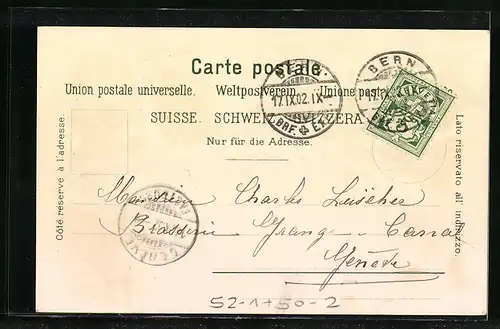 Carte postale.
Union postale universelle. Weltpostverein. Unione postale
SUISSE. SCHWEIZ. SVIZZERA.
Nur für die Adresse.
Côté réservé à l'adresse.
Lato riservato all' indirizzo.
BERN
17.IX.02.IX
BRF.
BERN
17.IX.
Monsieur Charles Lüscher
Brasserie Grange-Canal
Genève
GENÈVE
52-1+50-2